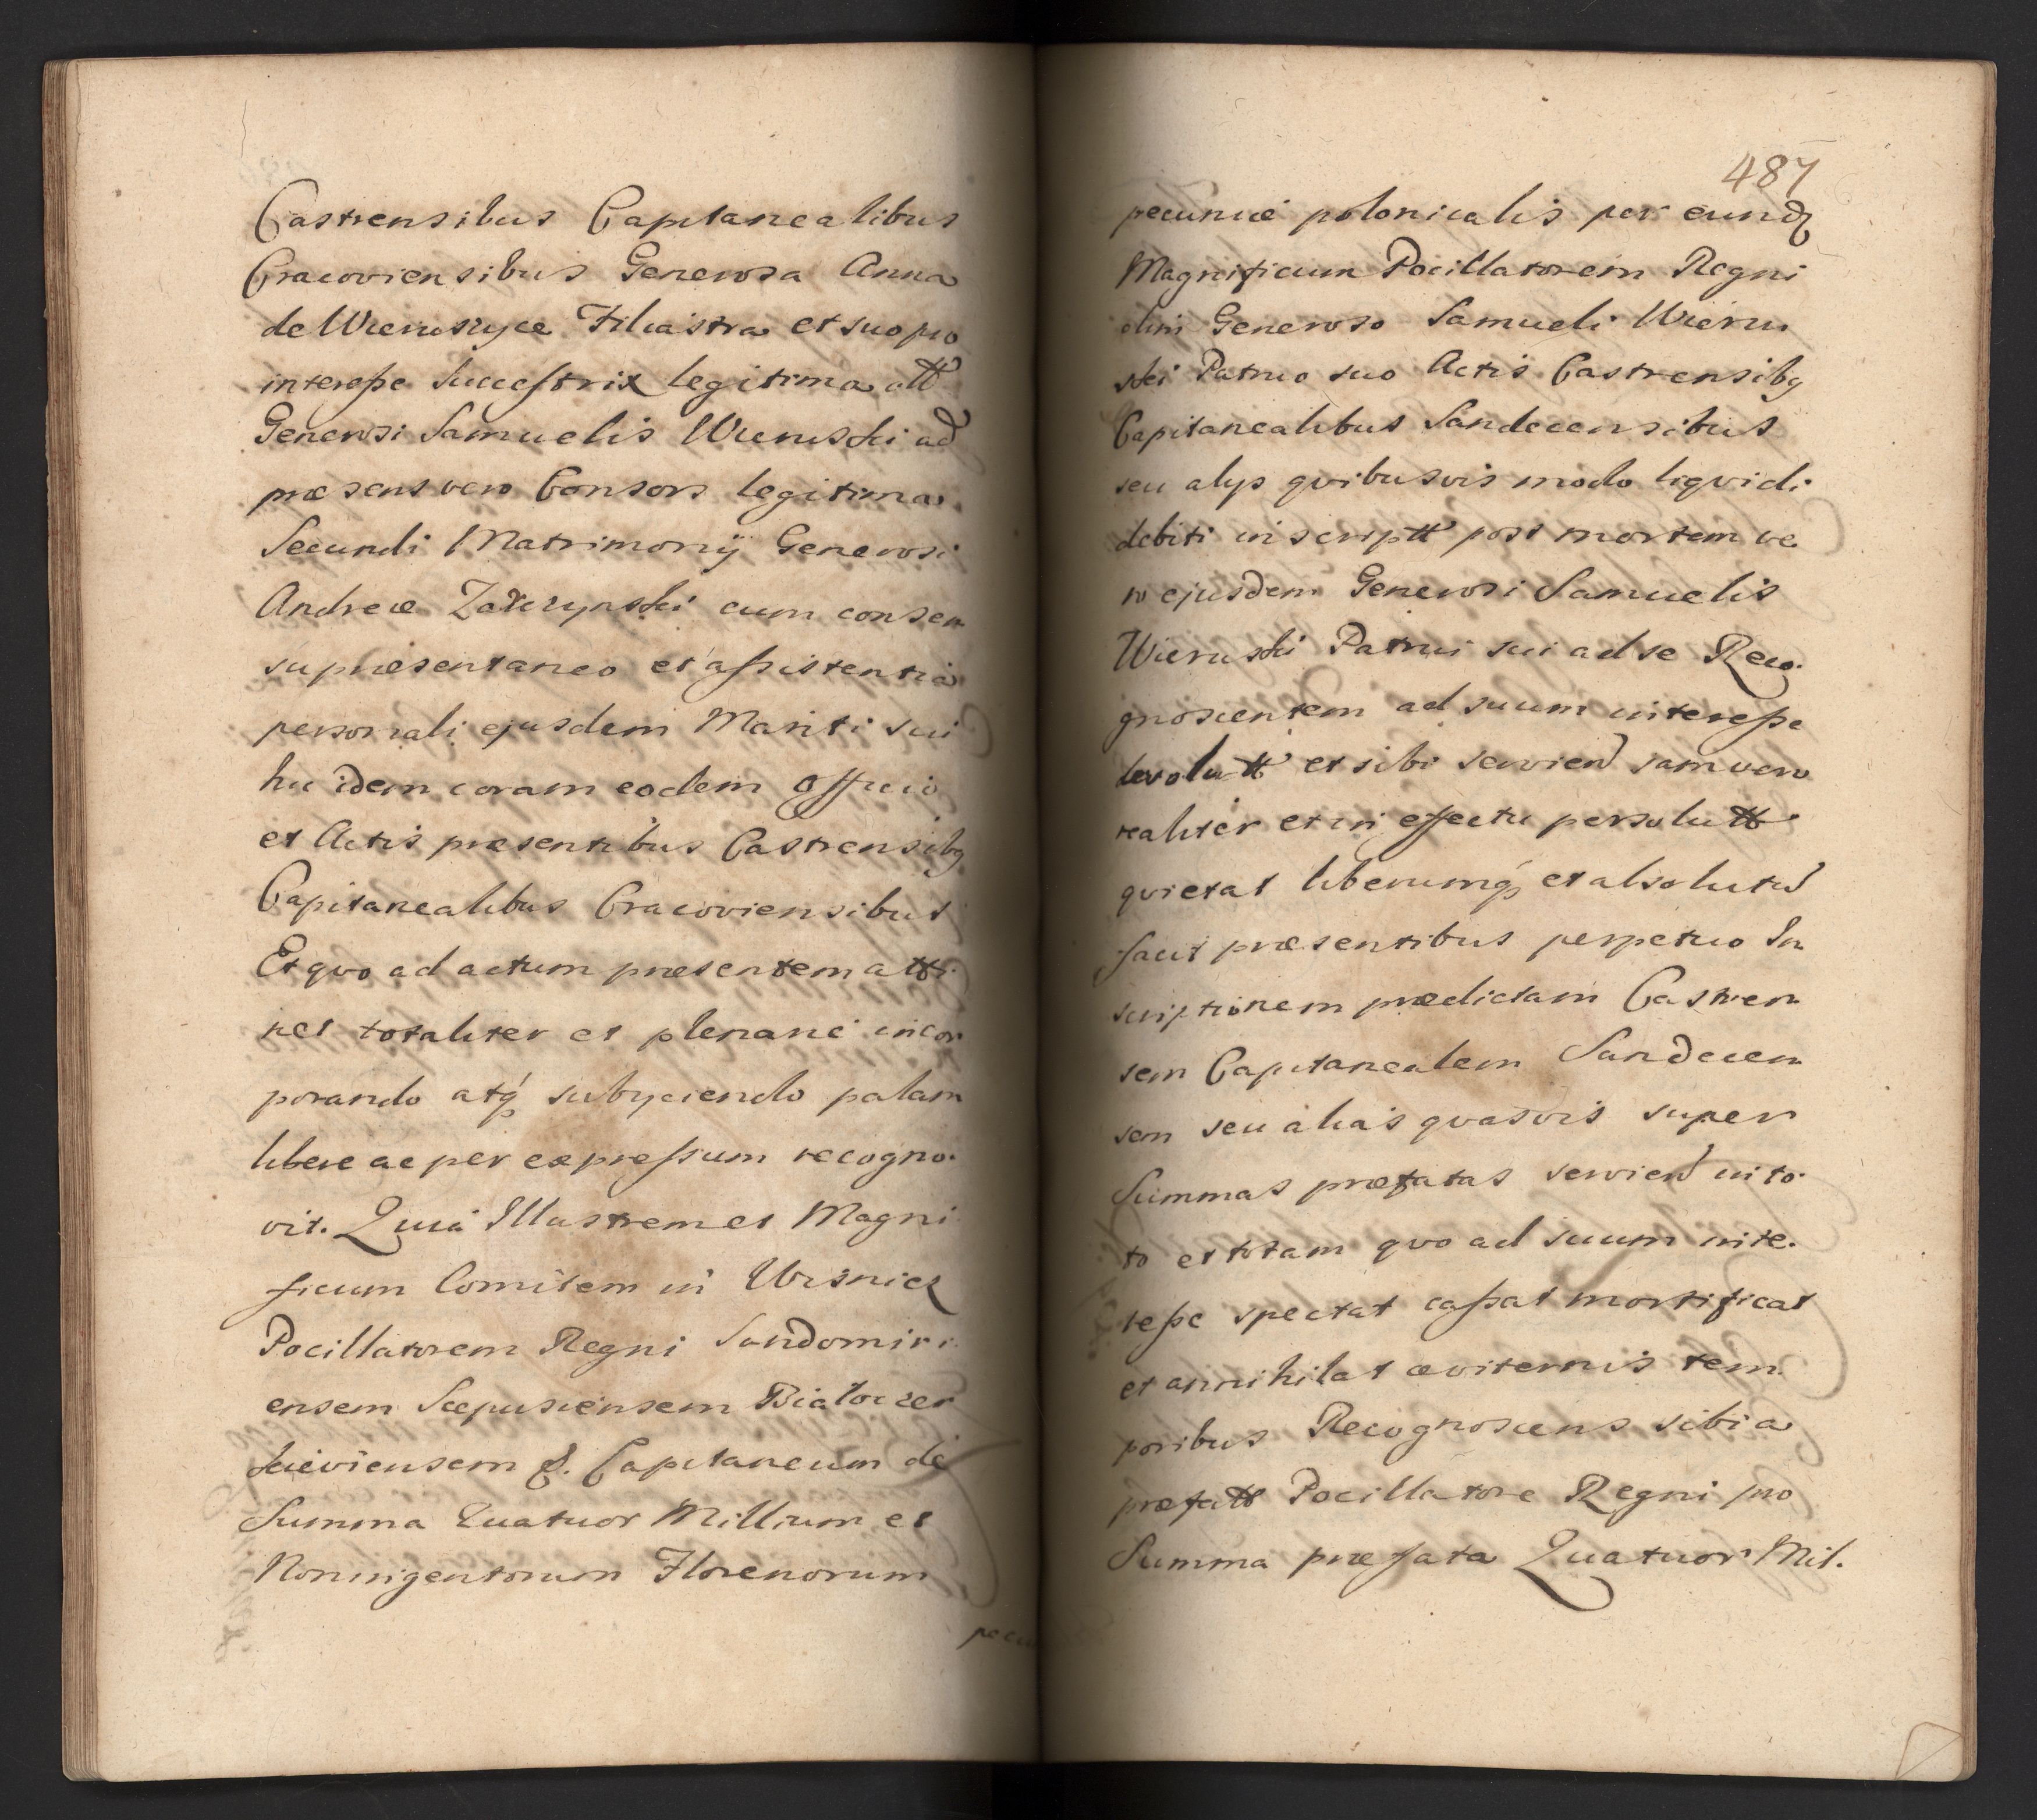 Castrensibus Capitanealibus
Cracoviensibus Generosa Anna
de Wieruszyce Filiastra et suo pro
interesse Successtrix legitima olt
Generosi Samuelis Wieruski ad
præsens vero Consors legitima
Secundi Matrimonij Generosi
Andreæ Zakrzynski cum consen
su præsentaneo et assistentia
personali ejusdem Mariti sui
hic idem coram eodem Officio
et Actis præsentibus Castrensibq
Capitanealibus Cracoviensibus
Et qvo ad actum præsentem atti
net totaliter et plenarie incor
porando atq subyciendo palam
libere ac per expressum recogno
vit. Quia Illustrem et Magni
ficum Comitem in Wisnicz
Pocillatorem Regni Sandomiri
ensem Scepusiensem Białocer
kieviensem &. Capitaneum de
Summa Quatuor Millium et
Noningentorum Florenorum
pecu
487
pecuniæ polonicalis per eundq
Magnificum Pocillatorem Regni
olim Generoso Samueli Wieru
ski Patruo suo Actis Castrensibq
Capitanealibus Sandecensibus
seu alys qvibusvis modo liqvidi
debiti inscriptt post mortem ve
ro ejusdem Generosi Samuelis
Wieruski Patrui sui ad se Reco
gnoscentem ad suum interesse
devolutt et sibi servien jam vero
realiter et in effectu persolutt
qvietat liberumq et absolutu
facit præsentibus perpetuo In
scriptionem prædictam Castren
sem Capitanealem Sandecen
sem seu alias qvasvis super
Summas præfatas servien in to
to et totam qvo ad suum inte.
resse spectat cassat mortificat
et annihilat æviternis tem
poribus Recognoscens sibi a
præfatt Pocillatore Regni pro
Summa præfata Quatuor Mil.